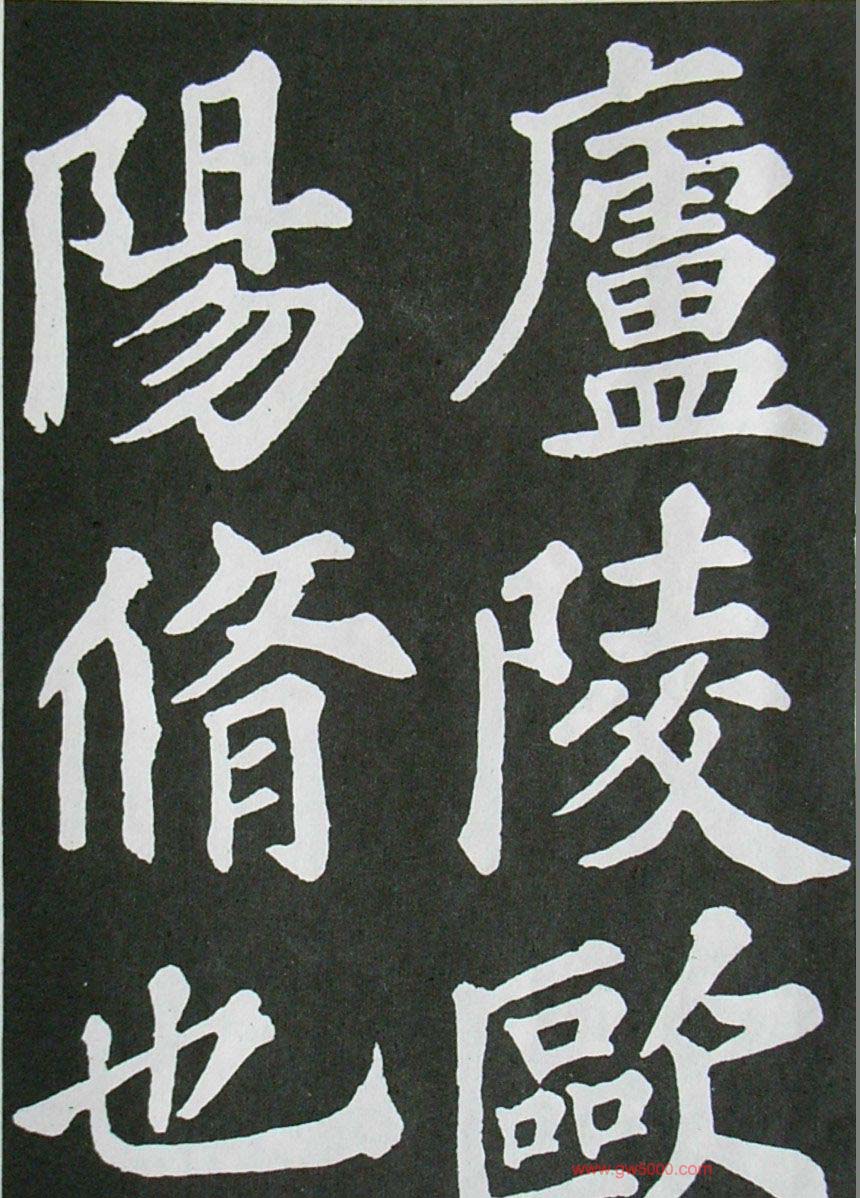 廬陵歐
陽脩也
www.gw5000.com